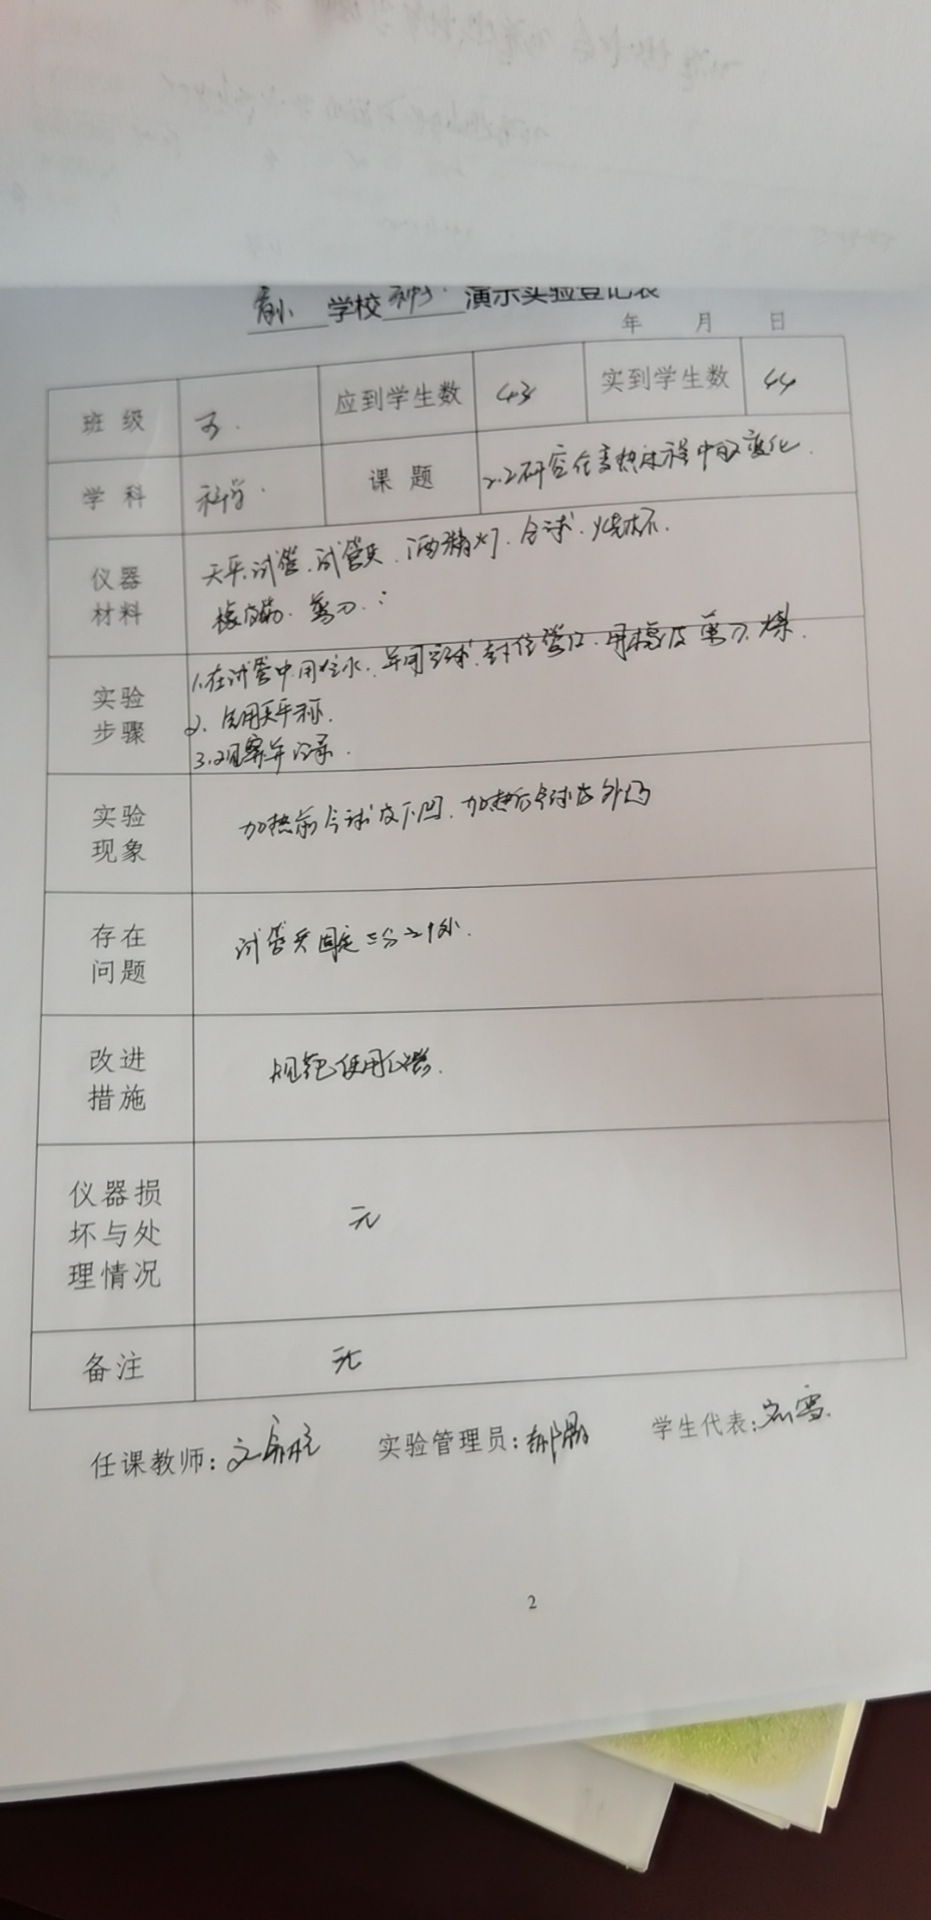 学校 演示实验登记表
年 月 日
班级 五. 应到学生数 43 实到学生数 44
学科 科学. 课题 2.2研究在素热过程中的变化.
仪器材料 天平.试管.试管夹.酒精灯.气球.烧杯.
橡皮筋.剪刀.
实验步骤 1.在试管中用 水. 气球.封住管口.用橡皮
2.先用天平称.
3.观察并记录.
实验现象 加热前气球皮下凹.加热后气球皮外凸
存在问题 试管夹固定三分之1处.
改进措施 规范使用仪器.
仪器损坏与处理情况 无
备注 无
任课教师: 文 实验管理员: 学生代表: 雪.
2